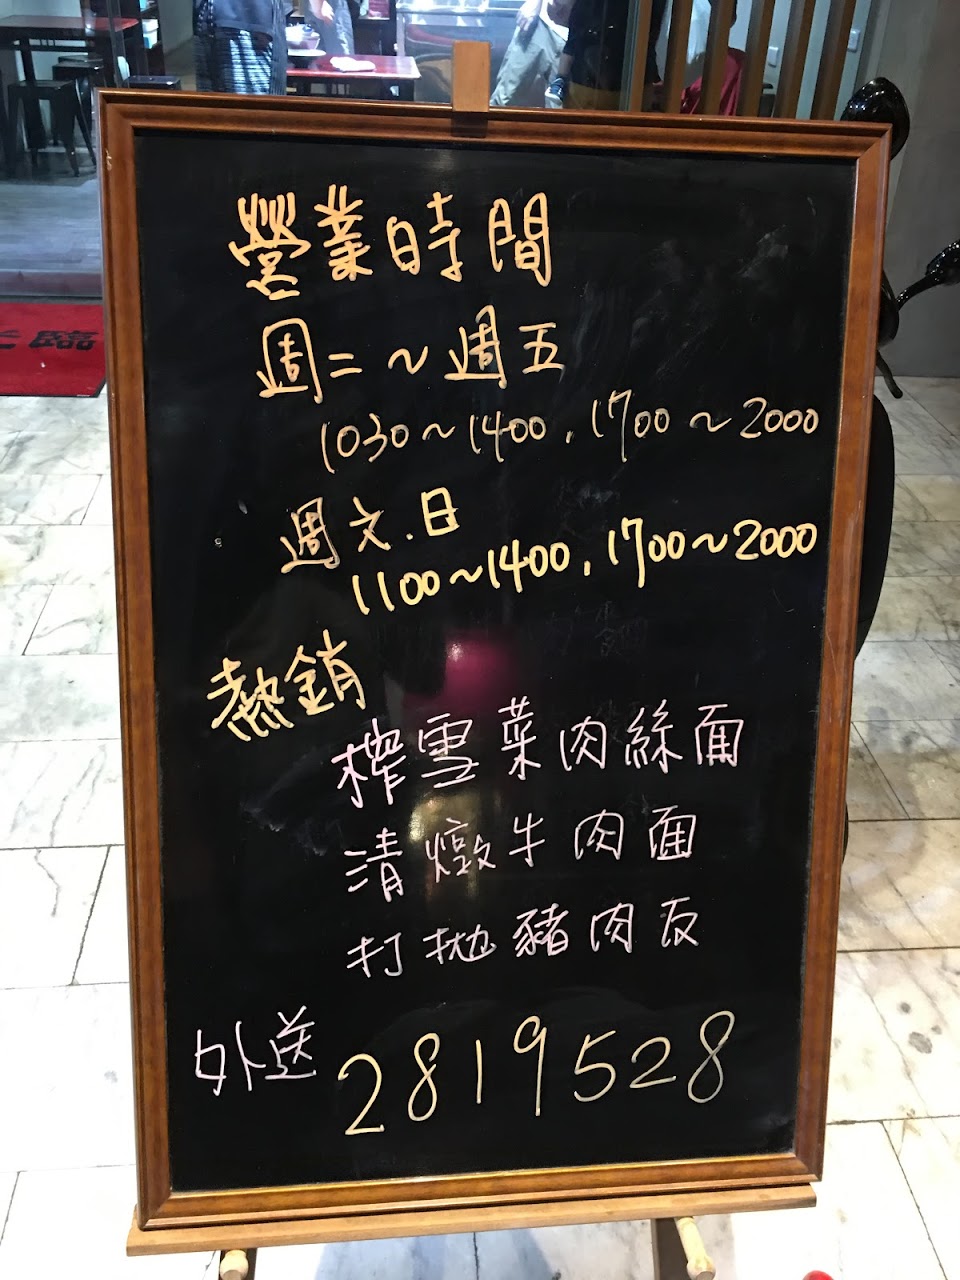 臨
營業時間
週二~週五
1030~1400,1700~2000
週六.日
1100~1400,1700~2000
熱銷
榨雪菜肉絲面
清燉牛肉面
打拋豬肉反
外送 2819528